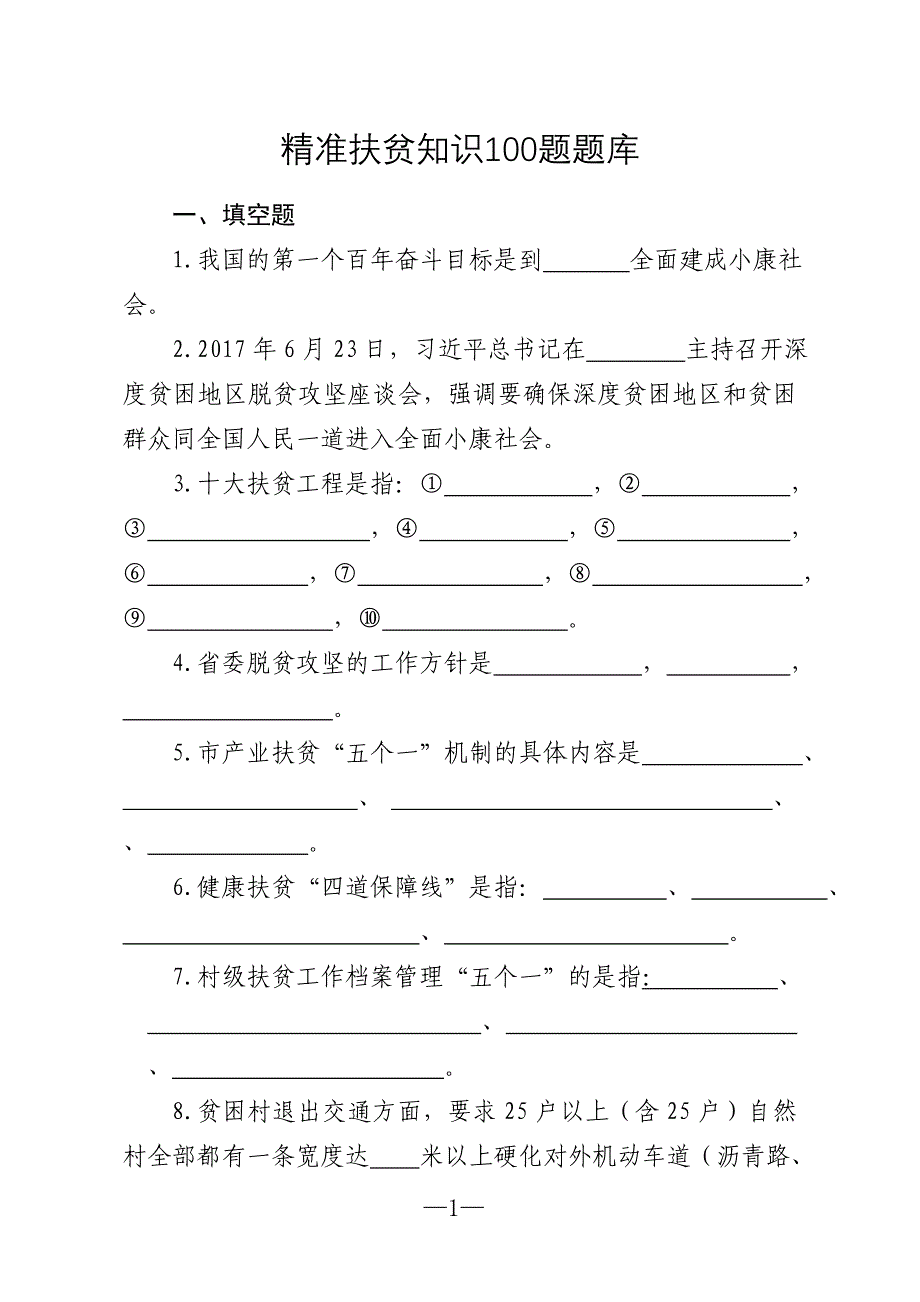 精准扶贫知识100题题库
一、填空题
1.我国的第一个百年奋斗目标是到_______全面建成小康社
会。
2.2017 年 6 月 23 日，习近平总书记在________主持召开深
度贫困地区脱贫攻坚座谈会，强调要确保深度贫困地区和贫困
群众同全国人民一道进入全面小康社会。
3.十大扶贫工程是指：①____________，②____________，
③__________________，④____________，⑤______________，
⑥_____________，⑦_______________，⑧_________________，
⑨_______________，⑩_______________。
4.省委脱贫攻坚的工作方针是____________，__________，
_________________。
5.市产业扶贫“五个一”机制的具体内容是_____________、
___________________、_______________________________、
、_____________。
6.健康扶贫“四道保障线”是指：__________、___________、
________________________、_______________________。
7.村级扶贫工作档案管理“五个一”的是指：___________、
___________________________、________________________
、______________________。
8.贫困村退出交通方面，要求 25 户以上（含 25 户）自然
村全部都有一条宽度达____米以上硬化对外机动车道（沥青路、
—1—